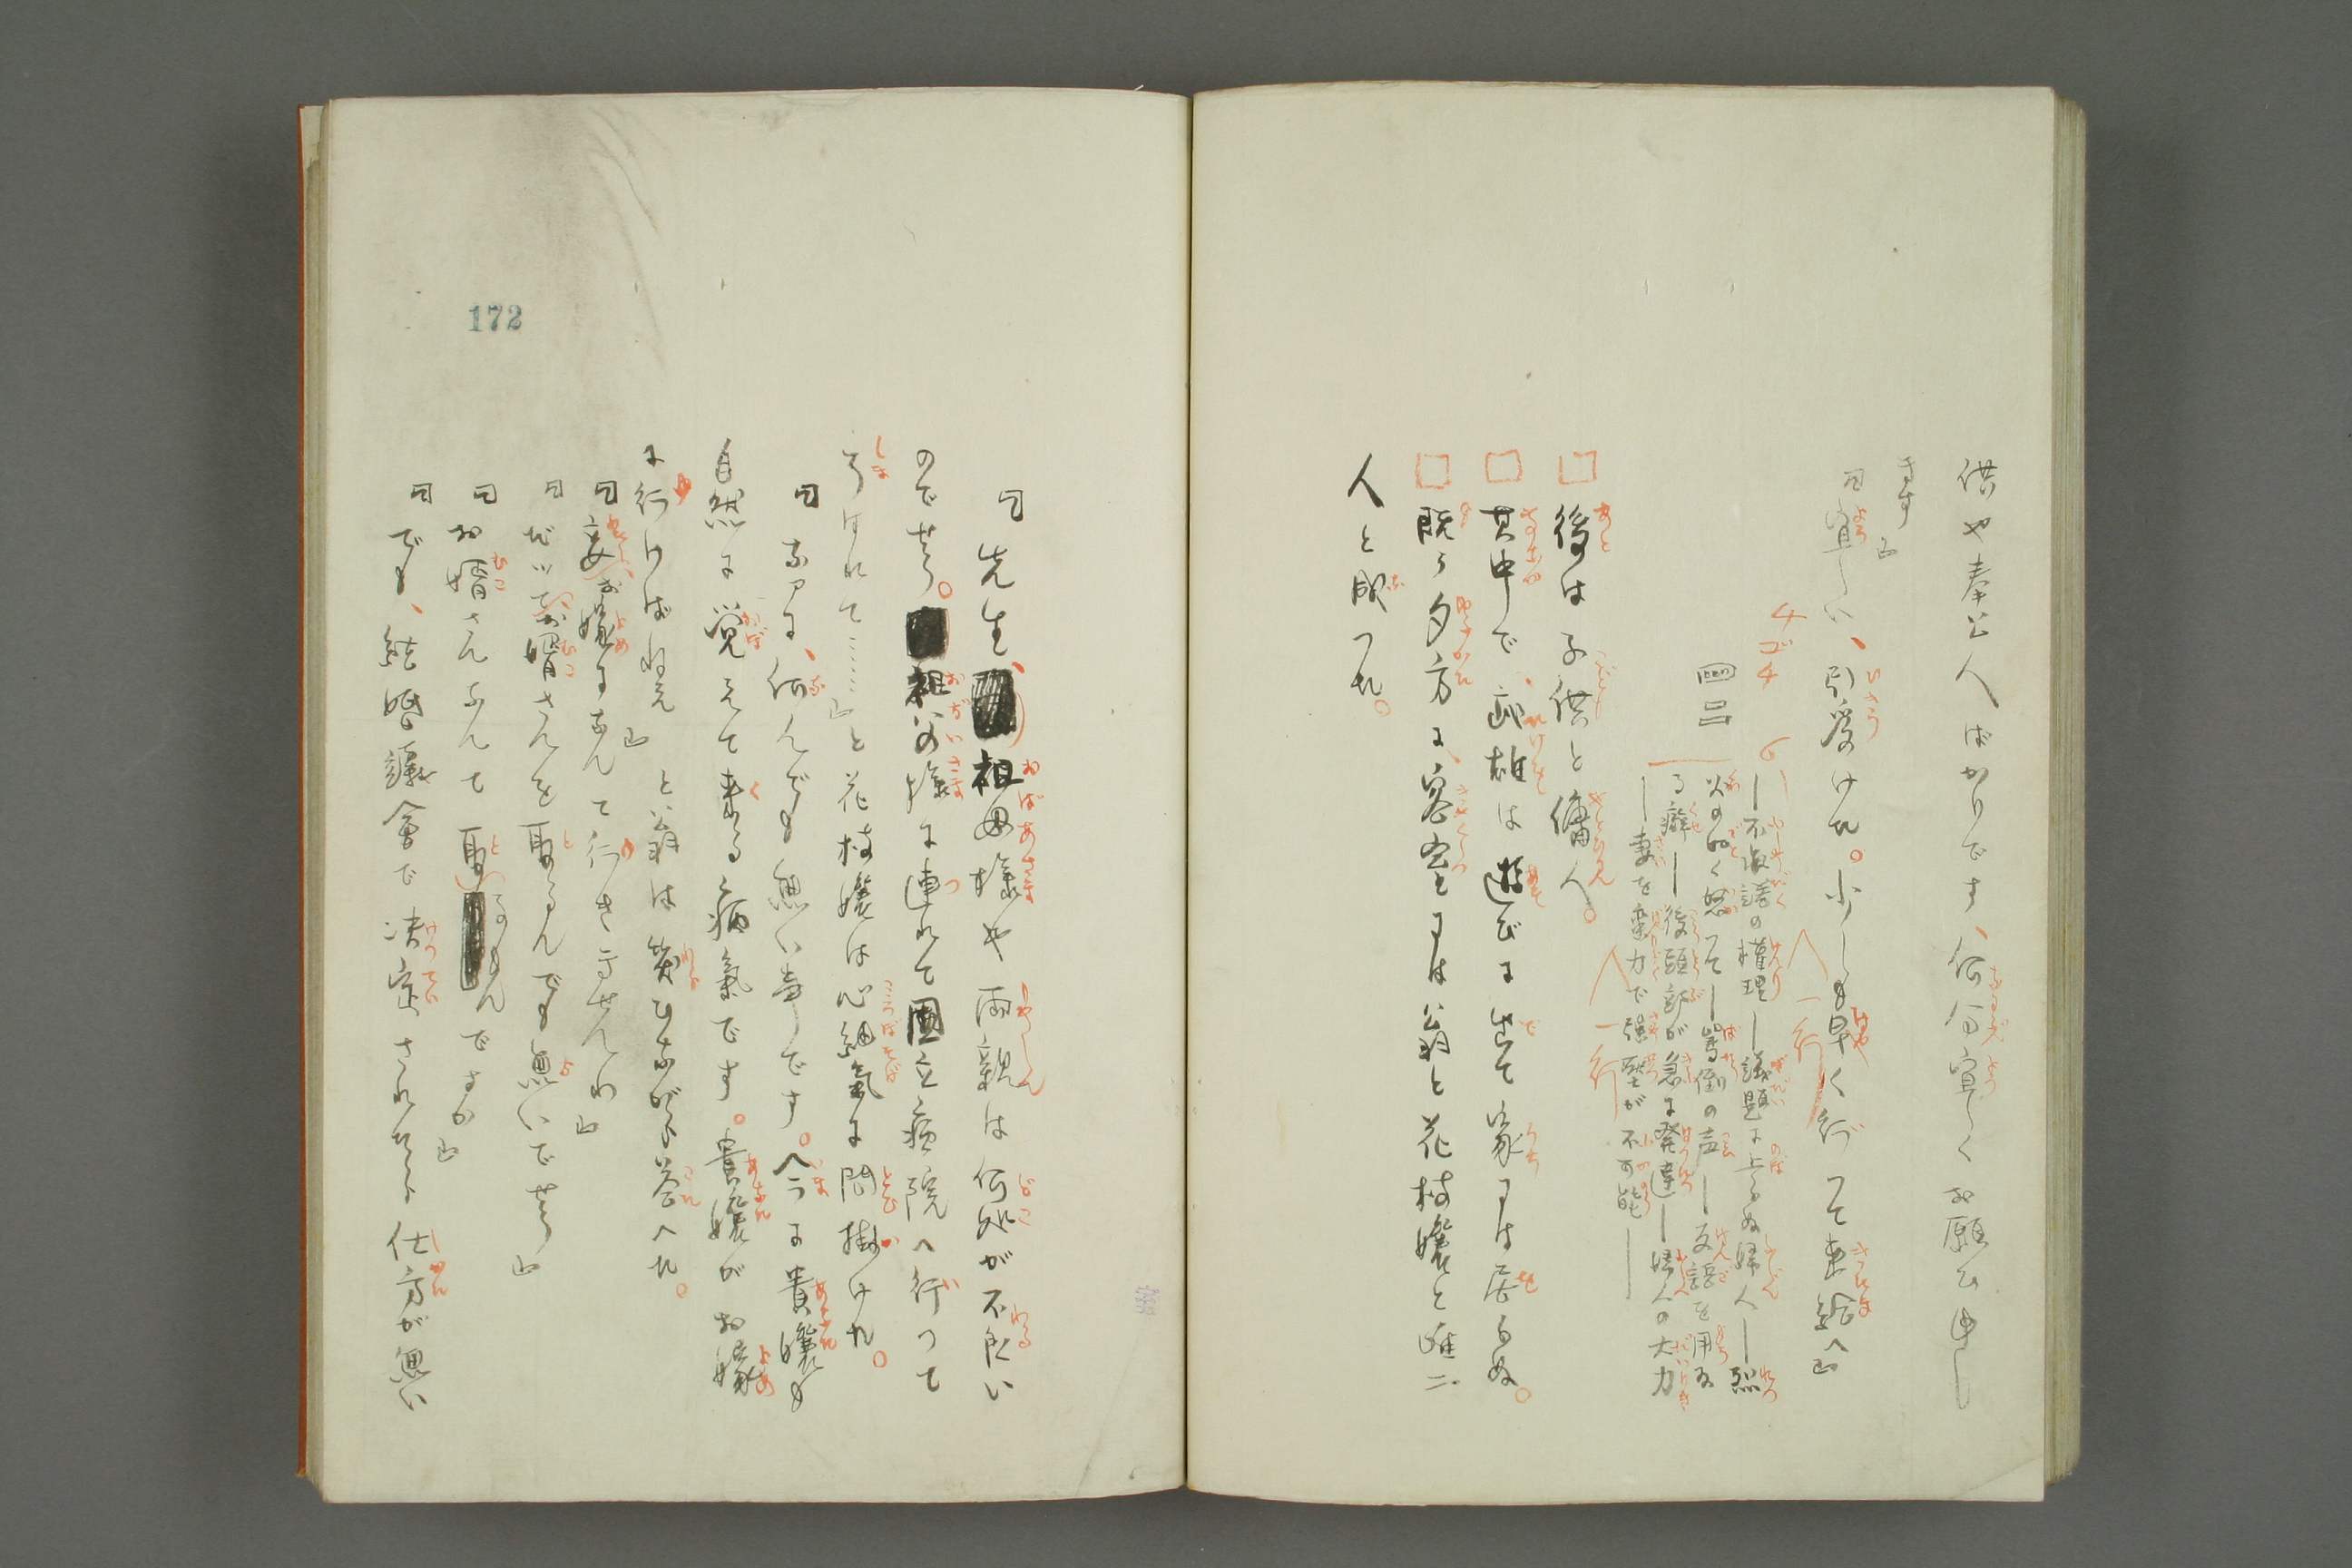 供や奉公人ばかりです、何分宜しくお願ひ申し
ます」
「宜しい、引受けた。少しも早く行つて来給へ」
四二
―不溫諾の權理―議題に上らぬ婦人―烈
火の如く怒つて―罵倒の声―反語を用る
る癖―後頭部が急に発達―婦人の大力
―妻を棄力で強壓が不可能―
後は子供と傭人。
其中で武雄は遊びに出て家には居らぬ。
既う夕方に客室には翁と花枝孃と唯二
人と成つた。
「先生、祖母樣や両親は何処が不良い
ので せう。祖父樣に連れて国立病院へ行つて
了はれて……」と花枝孃は心細氣に問掛けた。
「なアに、何んでも無い事です。今に貴孃も
自然に覚えて来る病氣です。貴孃がお嫁
に行けばねえ」と翁は笑ひながら答へた。
「妾お嫁になんて行きませんわ」
「ぢやお婿さんを取るんでも良いでせう」
「お婿さんなんて取るもんですか」
「でも、結婚議會で決定されたら仕方が無い
172